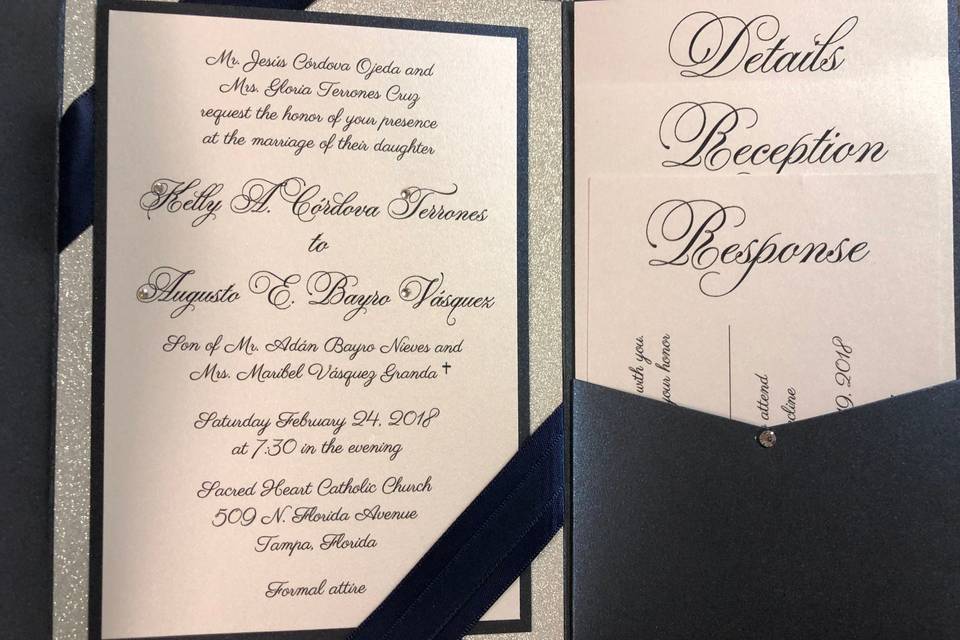 Mr. Jesús Córdova Ojeda and
Mrs. Gloria Terrones Cruz
request the honor of your presence
at the marriage of their daughter
Kelly A. Córdova Terrones
to
Augusto E. Bayro Vásquez
Son of Mr. Adán Bayro Nieves and
Mrs. Maribel Vásquez Granda †
Saturday February 24, 2018
at 7:30 in the evening
Sacred Heart Catholic Church
509 N. Florida Avenue
Tampa, Florida
Formal attire
Details
Reception
Response
with you.
your honor
attend
9, 2018